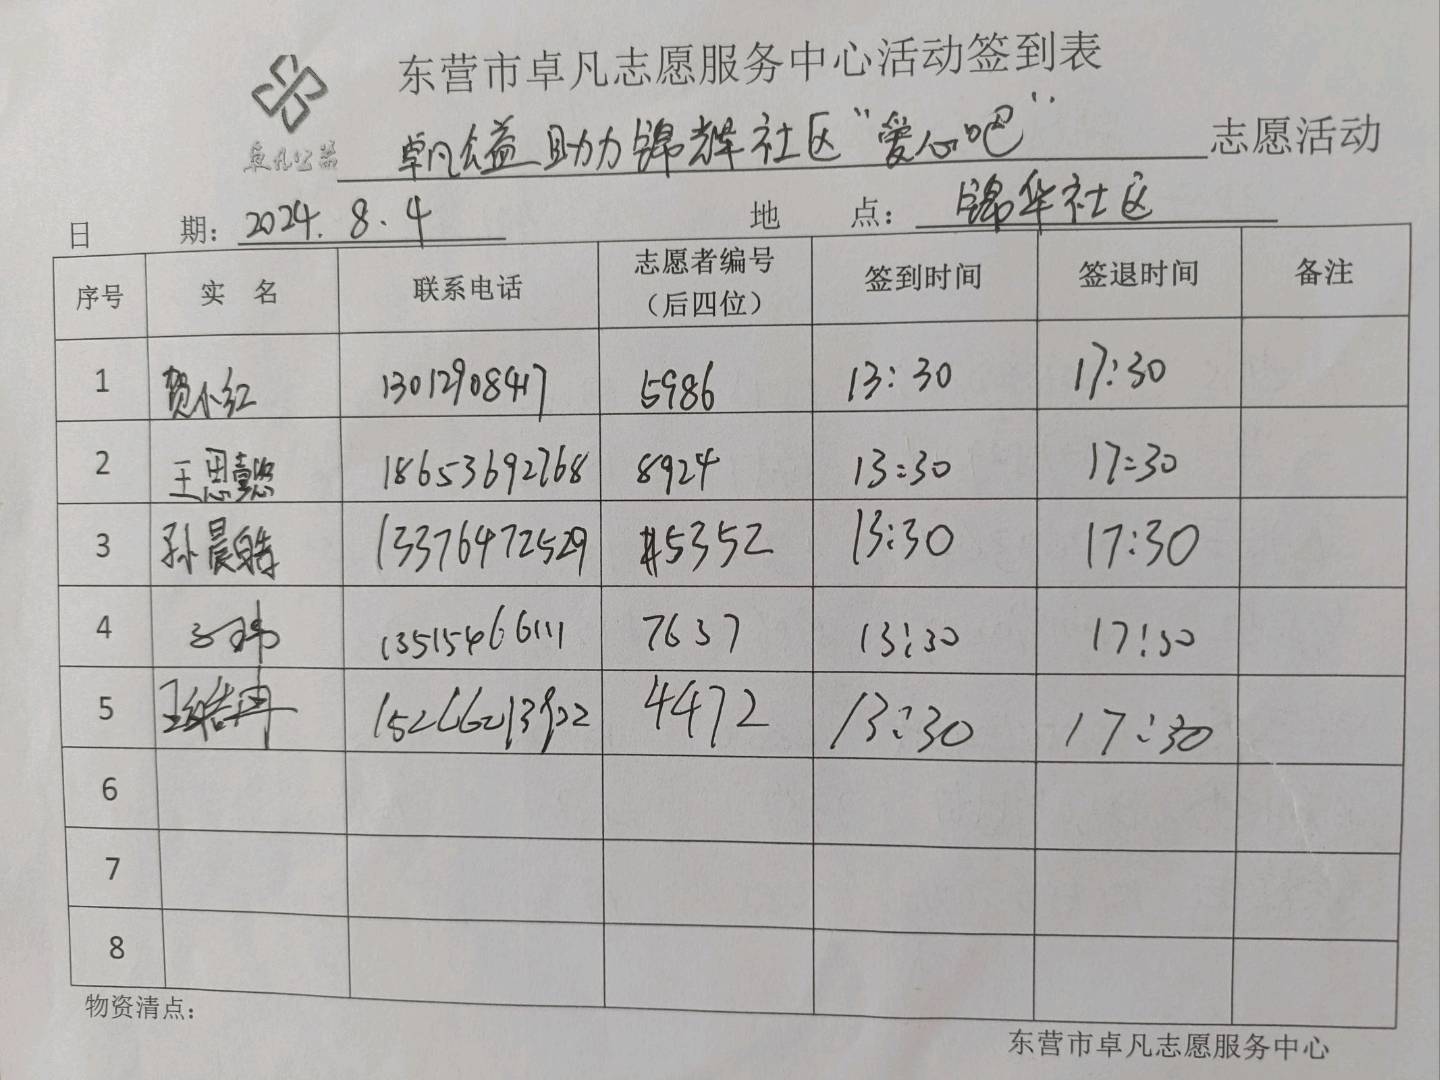 东营市卓凡志愿服务中心活动签到表
卓凡公益
卓凡公益助力锦辉社区“爱心吧” 志愿活动
日 期: 2024.8.4 地 点: 锦华社区
序号 实 名 联系电话 志愿者编号（后四位） 签到时间 签退时间 备注
1 贺小红 13012908417 5986 13:30 17:30
2 王思懿 18653692768 8924 13:30 17:30
3 孙晨皓 13376472529 5352 13:30 17:30
4 13515466111 7637 13:30 17:30
5 4472 13:30 17:30
6
7
8
物资清点:
东营市卓凡志愿服务中心